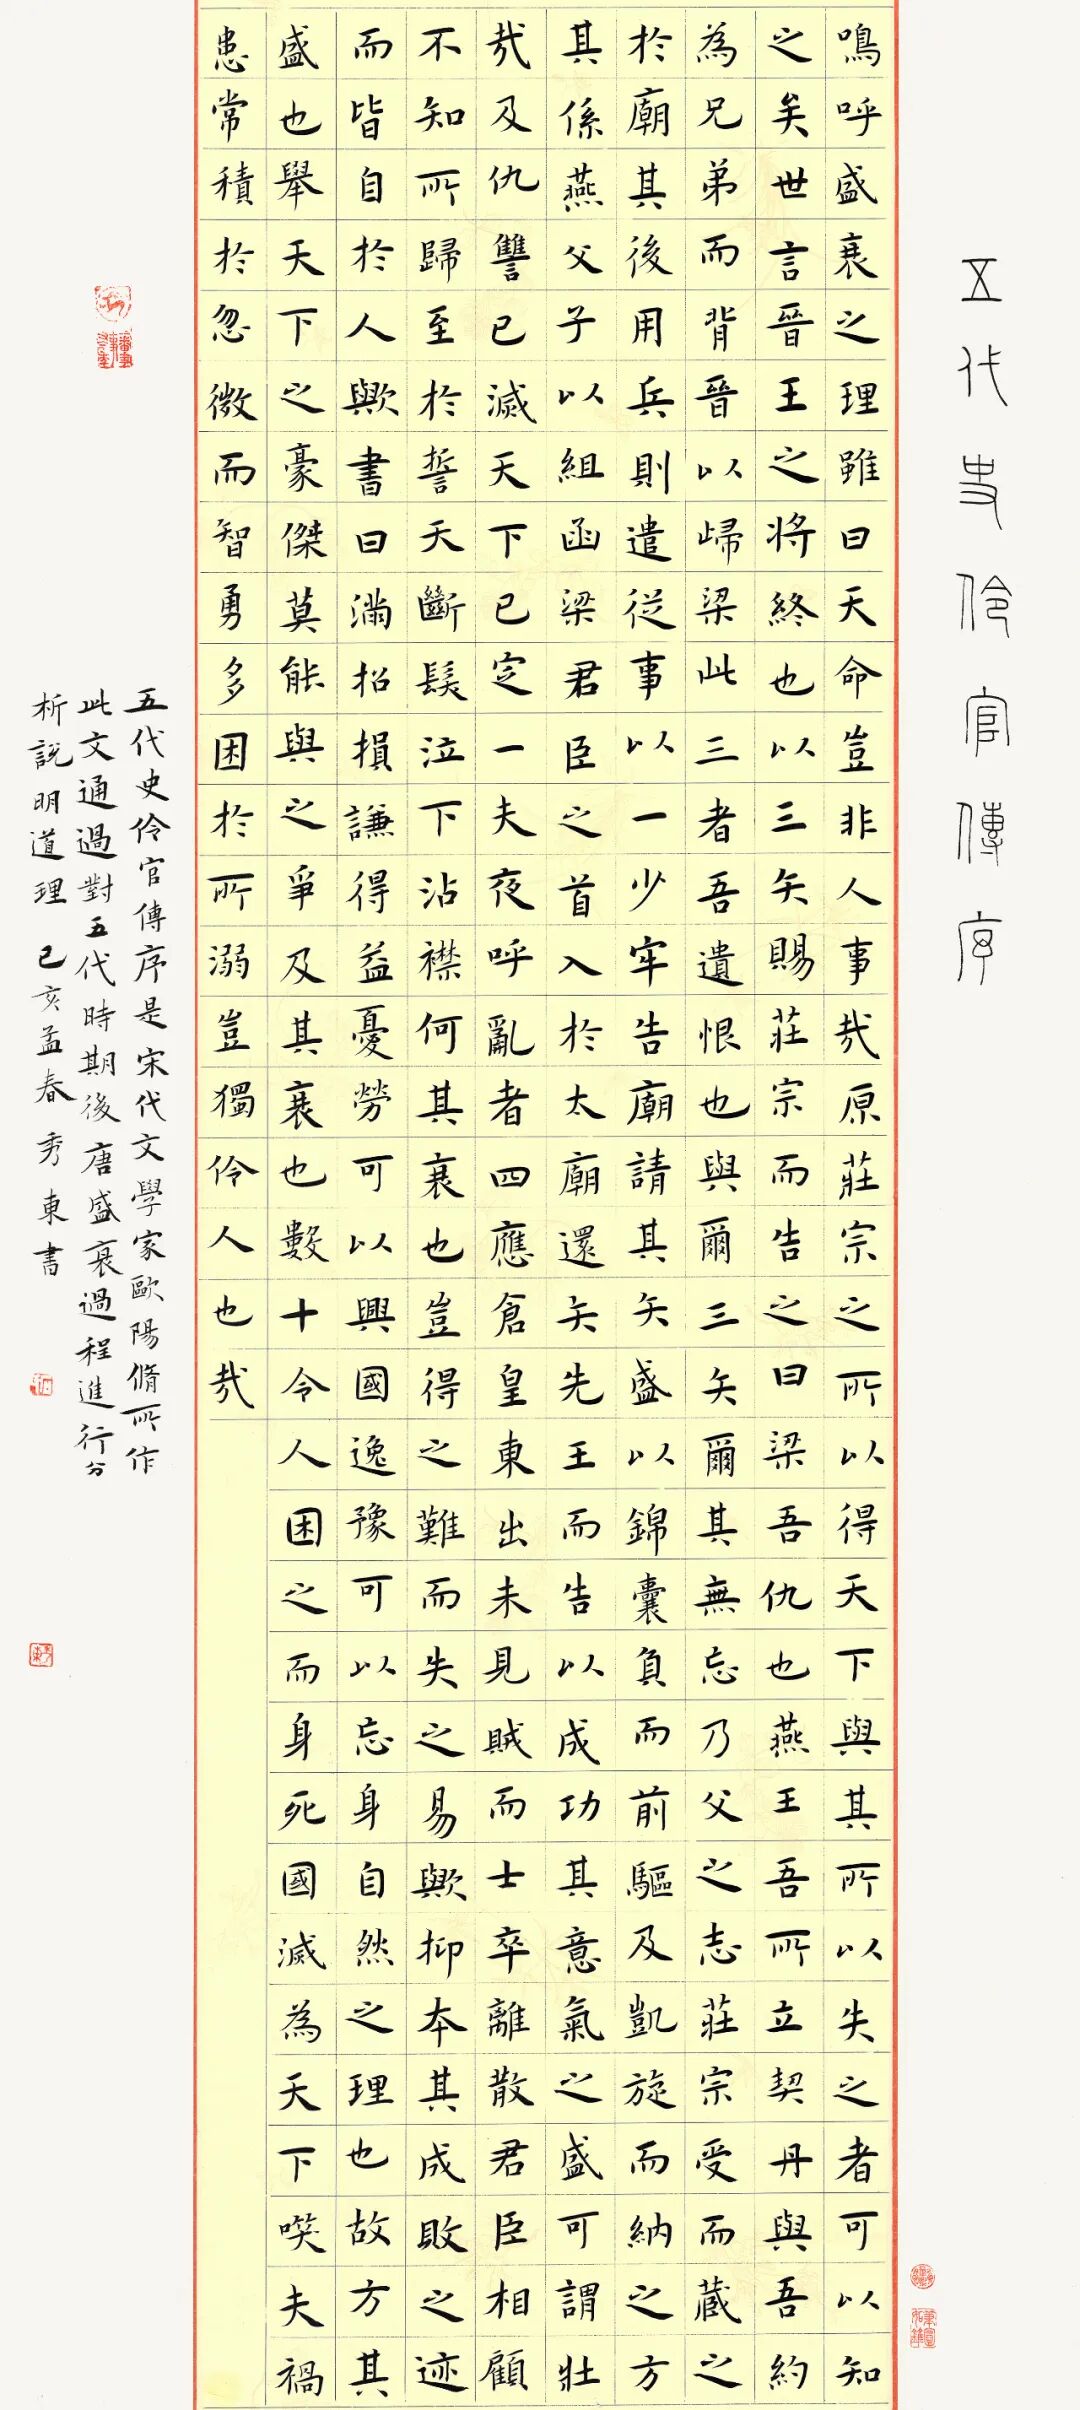 五代史伶官傳序
嗚呼盛衰之理雖曰天命豈非人事哉原莊宗之所以得天下與其所以失之者可以知
之矣世言晉王之將終也以三矢賜莊宗而告之曰梁吾仇也燕王吾所立契丹與吾約
為兄弟而背晉以歸梁此三者吾遺恨也與爾三矢爾其無忘乃父之志莊宗受而藏之
於廟其後用兵則遣從事以一少牢告廟請其矢盛以錦囊負而前驅及凱旋而納之方
其係燕父子以組函梁君臣之首入於太廟還矢先王而告以成功其意氣之盛可謂壯
哉及仇讐已滅天下已定一夫夜呼亂者四應倉皇東出未見賊而士卒離散君臣相顧
不知所歸至於誓天斷髮泣下沾襟何其衰也豈得之難而失之易歟抑本其成敗之迹
而皆自於人歟書曰滿招損謙得益憂勞可以興國逸豫可以忘身自然之理也故方其
盛也舉天下之豪傑莫能與之爭及其衰也數十令人困之而身死國滅為天下咲夫禍
患常積於忽微而智勇多困於所溺豈獨伶人也哉
五代史伶官傳序是宋代文學家歐陽脩所作
此文通過對五代時期後唐盛衰過程進行分
析說明道理 己亥孟春 秀東書